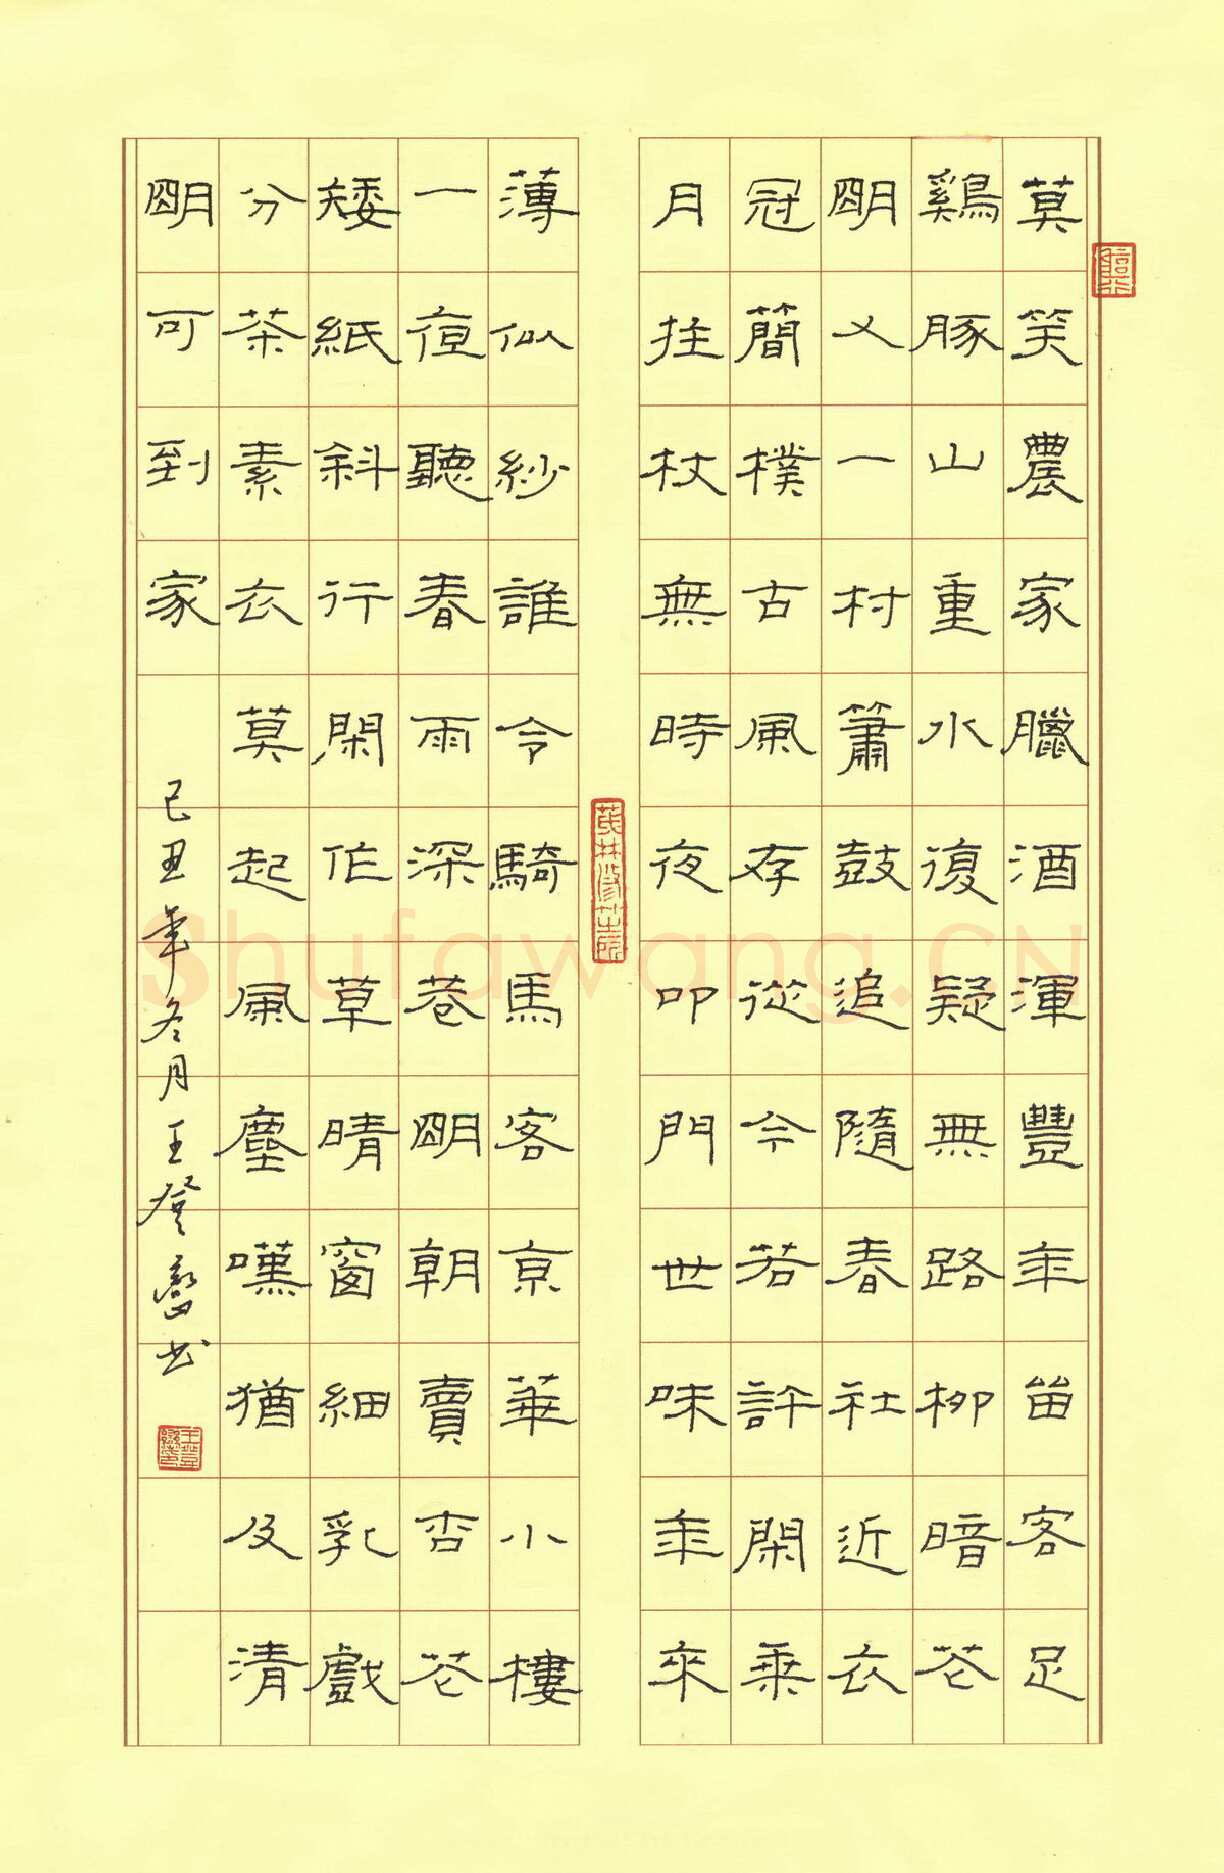 莫笑農家臘酒渾豐年留客足
鷄豚山重水復疑無路柳暗花
明又一村簫鼓追隨春社近衣
冠簡樸古風存從今若許閑乘
月拄杖無時夜叩門世味年來
薄似紗誰令騎馬客京華小樓
一夜聽春雨深巷明朝賣杏花
矮紙斜行閑作草晴窗細乳戲
分茶素衣莫起風塵嘆猶及清
明可到家
己丑年冬月王登书
Shufawang.CN